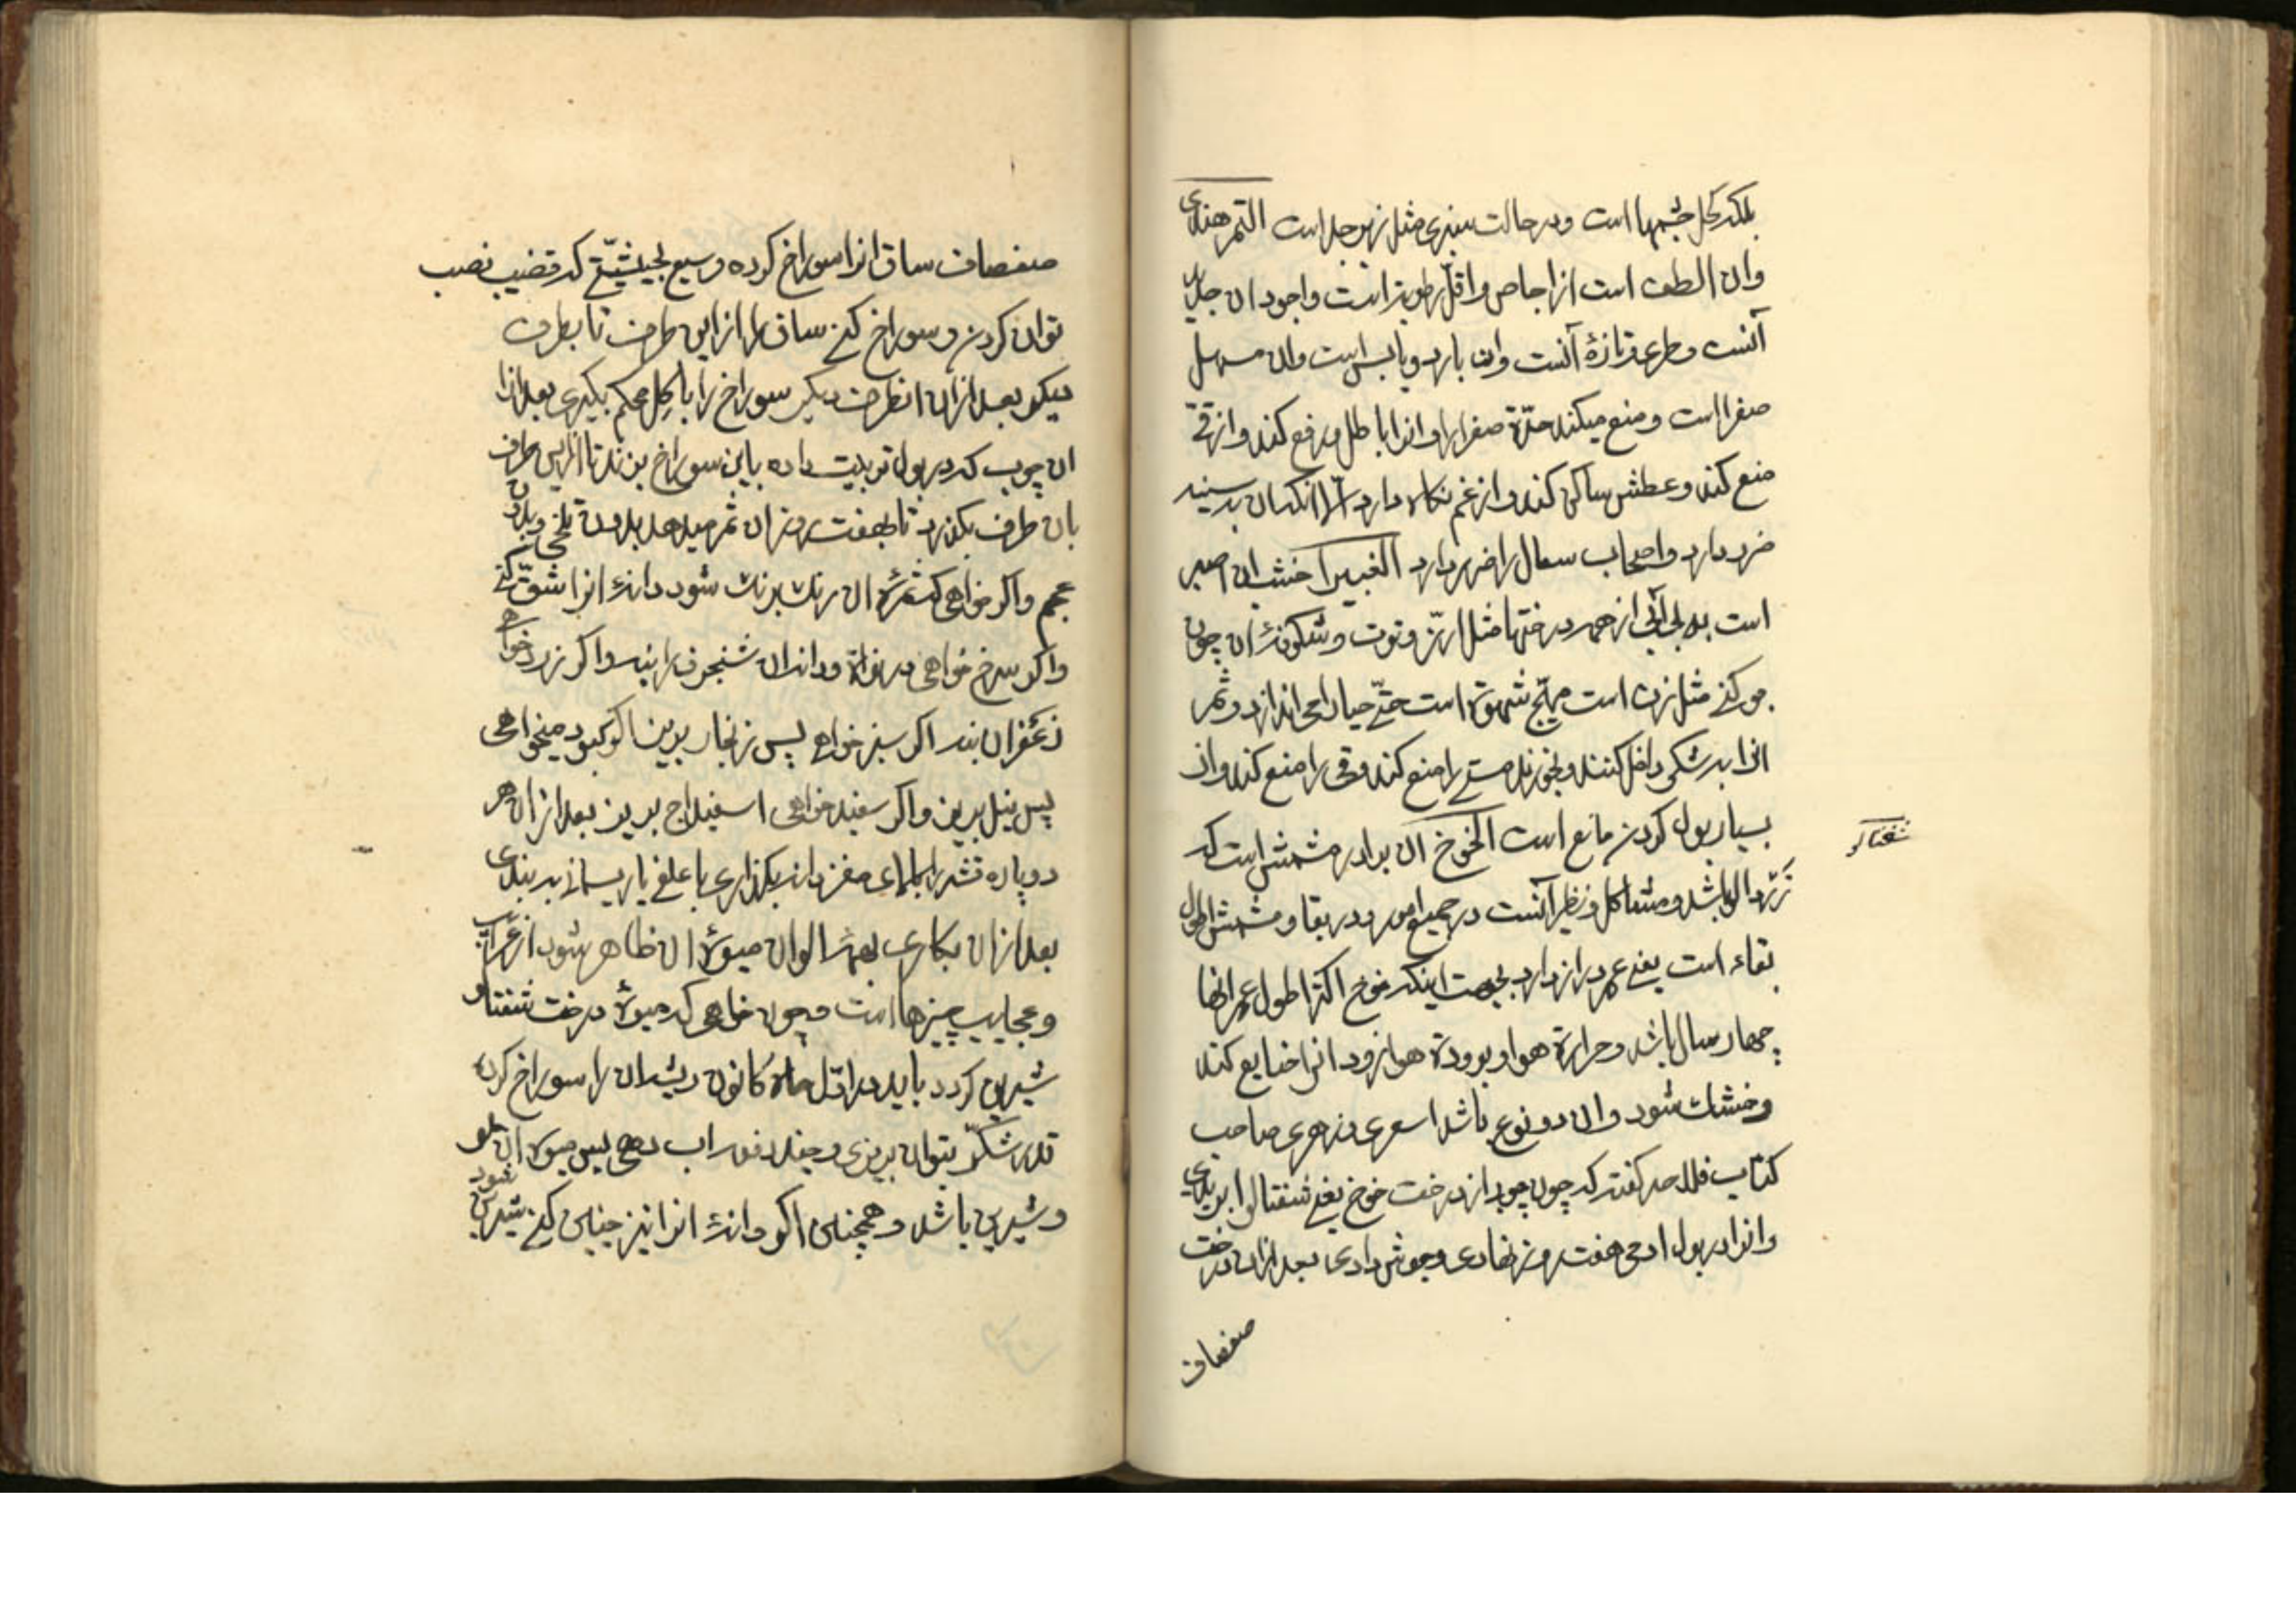 بلکه کحل چشمها است و در حالت سبزی مثل زبرجد است التمر هندی
وان الطف است از اجاص و اقل رطوبة است و اجود ان جدید
آنست و طری و تازهٔ آنست وان بارد و یابس است وان مسهل
صفرا است و منع میکند حدّة صفرا را و انرا باطل و رفع کند و از قیّ
منع کند و عطش ساکن کند و از غم نکاه دارد الّا انکه ان بسینه
ضرر دارد و اصحاب سعال را ضرر دارد الغبیرا خشب ان اصبر
است از همه درختها مثل ارز و توت و شکوفهٔ ان چون
بو کنی مثل زن است مهیّج شهوة است حتّی حیا را می اندازد و ثمر
انرا بد شکر داخل کنند و بخورند مستی را منع کند و قی را منع کند و از
بسیار بول کردن مانع است الخوخ ان برادر مشمش است که
زرد الو باشد و مشاکل و نظیر آنست در جمیع امور و در بقا و مشمش اطول
بقاء است یعنی عمر دراز دارد بجهت اینکه خوخ اکثر اطول عمر انها
چهار سال باشد و حرارة هوا و برودة هوا زود انرا ضایع کند
و خشك شود وان دو نوع باشد اسعری و زهری صاحب
کتاب فلاحه کفته که چون چوب از درخت خوخ یعنی شفتالو را ببری
و انرا در بول ادمی هفت روز نهادی و جوش دادی بعد ازان درخت
صفصاف
شفتالو
صفصاف ساق انرا سوراخ کرده وسیع بحیثیّتی که قضیب نصب
توان کردن و سوراخ کنی ساق را از این طرف تا بطرف
دیکر بعد از ان انطرف دیکر سوراخ را با کل محکم بکیری بعد از
ان چوب که در بول تربیت داده باین سوراخ بزند تا از این طرف
بان طرف بکذرد تا بهفت روز ان ثمر میدهد بدون تلخی و بدون
عجم و اکر خواهی که ثمرهٔ ان رنك برنك شود دانهٔ انرا شقّ کنی
و اکر سرخ خواهی در نواة و دانهٔ ان شنجرف را بنه و اکر زرد خواهی
زعفران بنه اکر سبز خواهی پس زنجار بریز اکر کبود میخواهی
پس نیل بریز و اکر سفید خواهی اسفیداج بریز بعد از ان هر
دو پاره قشر را بالای مغز دانه بکذاری با علفی یا ریسمانی به بندی
بعد از ان بکاری بهمهٔ الوان میوهٔ ان ظاهر شود از غرایب
و عجایب چیزها است و چون خواهی که میوهٔ درخت شفتالو
شیرین کردد باید در اوّل ماه کانون ریشه ان را سوراخ کرده
قدر شکر بتوان بریزی و چند دفعه اب دهی پس میوهٔ ان حلو
و شیرین باشد و همچنان اکر دانهٔ انرا نیز چنان کنی شیرین شود